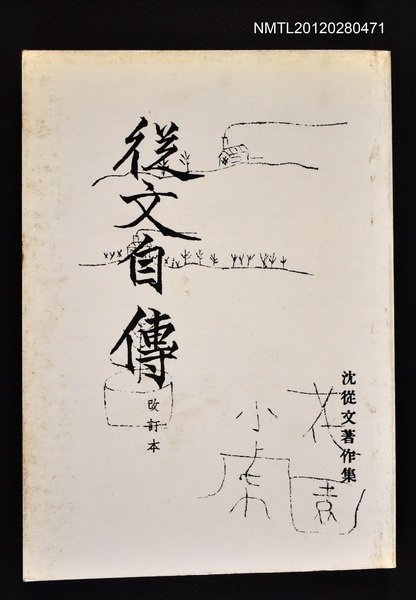 NMTL20120280471
從文自傳
改訂本
沈從文著作集
花園
小